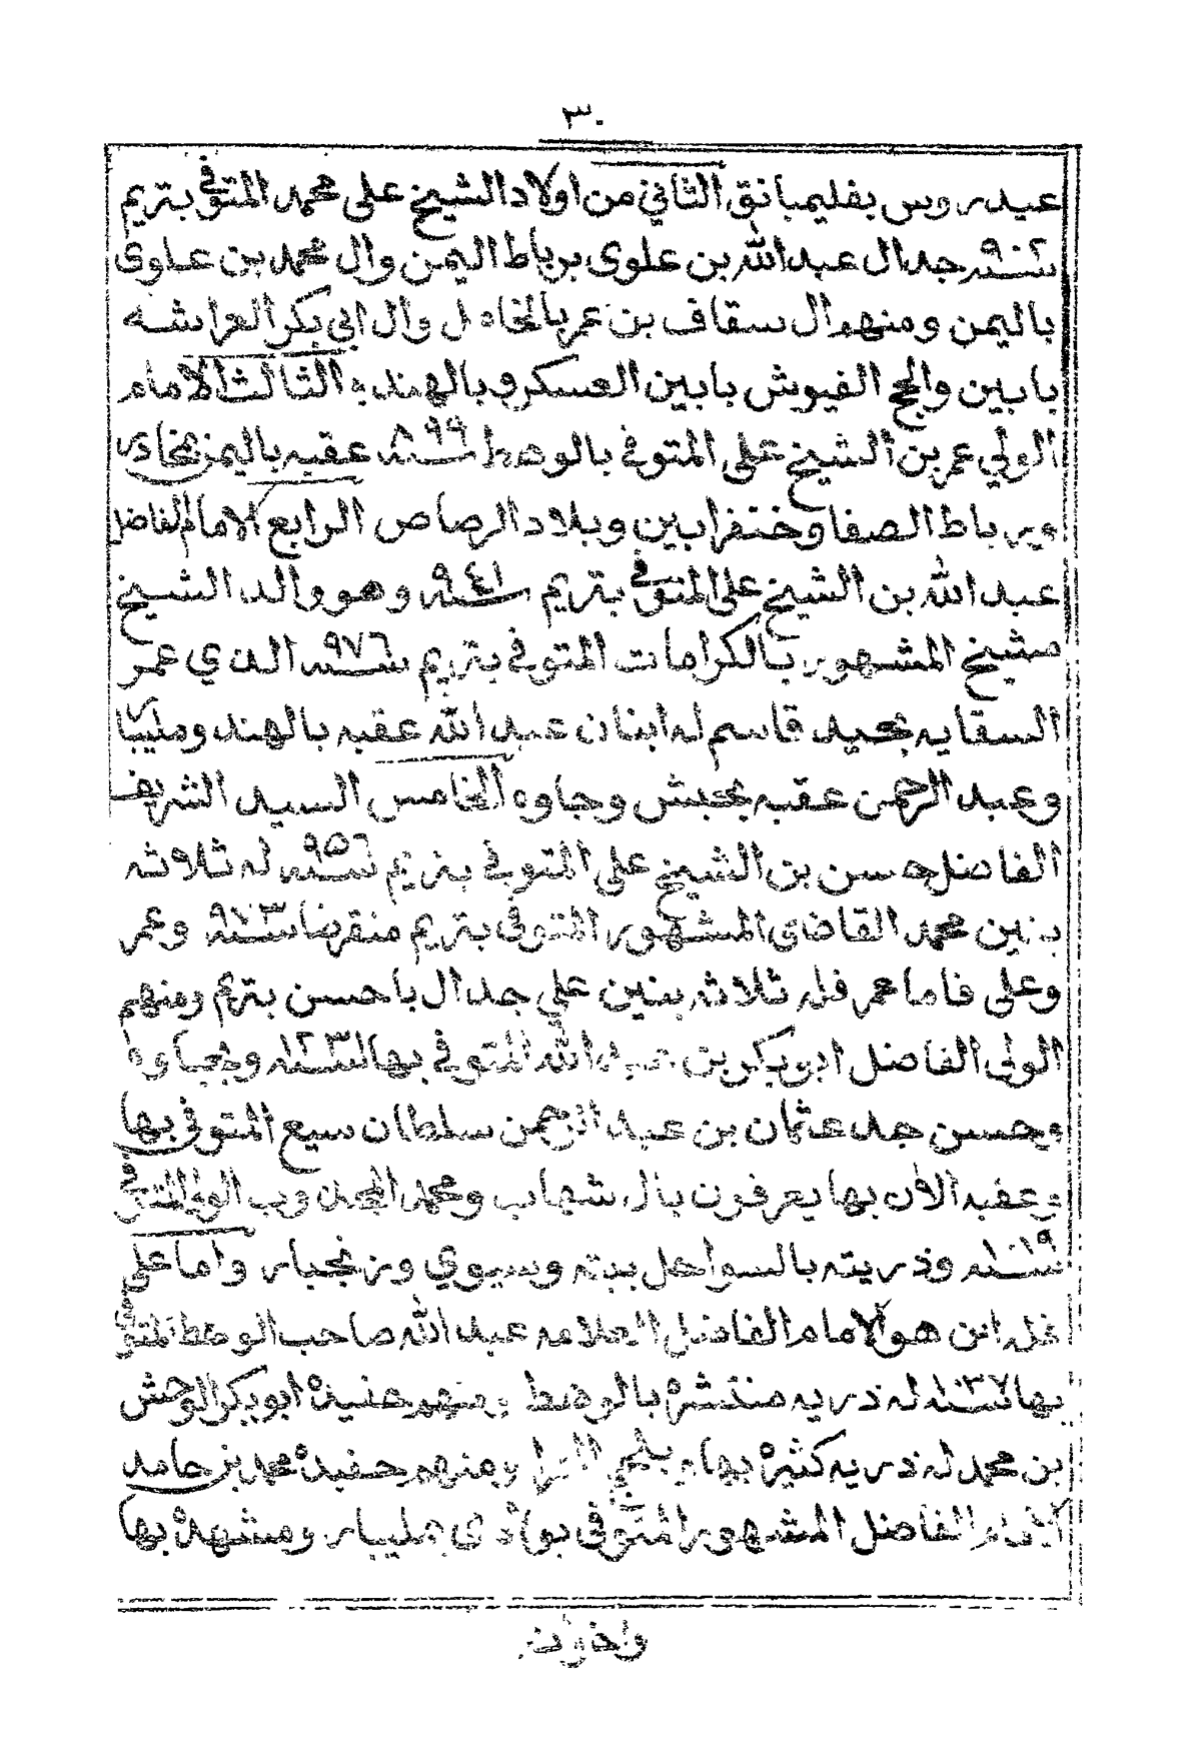 ٣٠
عيدروس بفليمبانق الثاني من اولاد الشيخ على محمد المتوفى بتريم
سنه ٩٠٢ جد ال عبد الله بن علوى برباط اليمن وال محمد بن علوى
باليمن ومنهم ال سقاف بن عمر بالخاه ل وال ابي بكر العرابشه
بابين والحج الفيوش بابين العسكر وبالهند ؛ الثالث الامام
الولي عمر بن الشيخ على المتوفى بالوهط سنه ٨٩٩ عقبه باليمن بخادى
وبرباط الصفا وخنفر ابين وبلاد الرصاص الرابع الامام الفاضل
عبد الله بن الشيخ على المتوفى بتريم سنه ٩٤١ وهو والد الشيخ
شيخ المشهور بالكرامات المتوفى بتريم سنه ٩٧٦ الذي عمر
السقايه بحيد قاسم له ابنان عبد الله عقبه بالهند ومليبا
وعبد الرحمن عقبه بحبش وجاوه الخامس السيد الشريف
الفاضل حسن بن الشيخ على المتوفى بتريم سنه ٩٥٦ له ثلاثه
بنين محمد القاضى المشهور المتوفى بتريم منقرضا سنه ٩٧٣ وعمر
وعلى فاما عمر فله ثلاثه بنين علي جد ال باحسن بتريم ومنهم
الولى الفاضل ابوبكر بن عبد الله المتوفى بها سنه ١٢٣ وبجاوه
وحسن جد عثمان بن عبد الرحمن سلطان سيع المتوفى بها
وعقبه الان بها يعرفون بال شهاب ومحمد المجدوب الولى المتوفى
سنه ١٠١٩ وذريته بالسواحل ببته وسيوي وزنجبار واما على
فله ابن هو الامام الفاضل العلامه عبد الله صاحب الوهط المتوفى
بها سنه ١٠٣٧ له ذريه منتشرة بالوهط ومنهم حفيده ابوبكر الوحش
بن محمد له ذريه كثيرة بها ومنهم حفيده محمد بن حامد
الامام الفاضل المشهور المتوفى بمليبار ومشهده بها